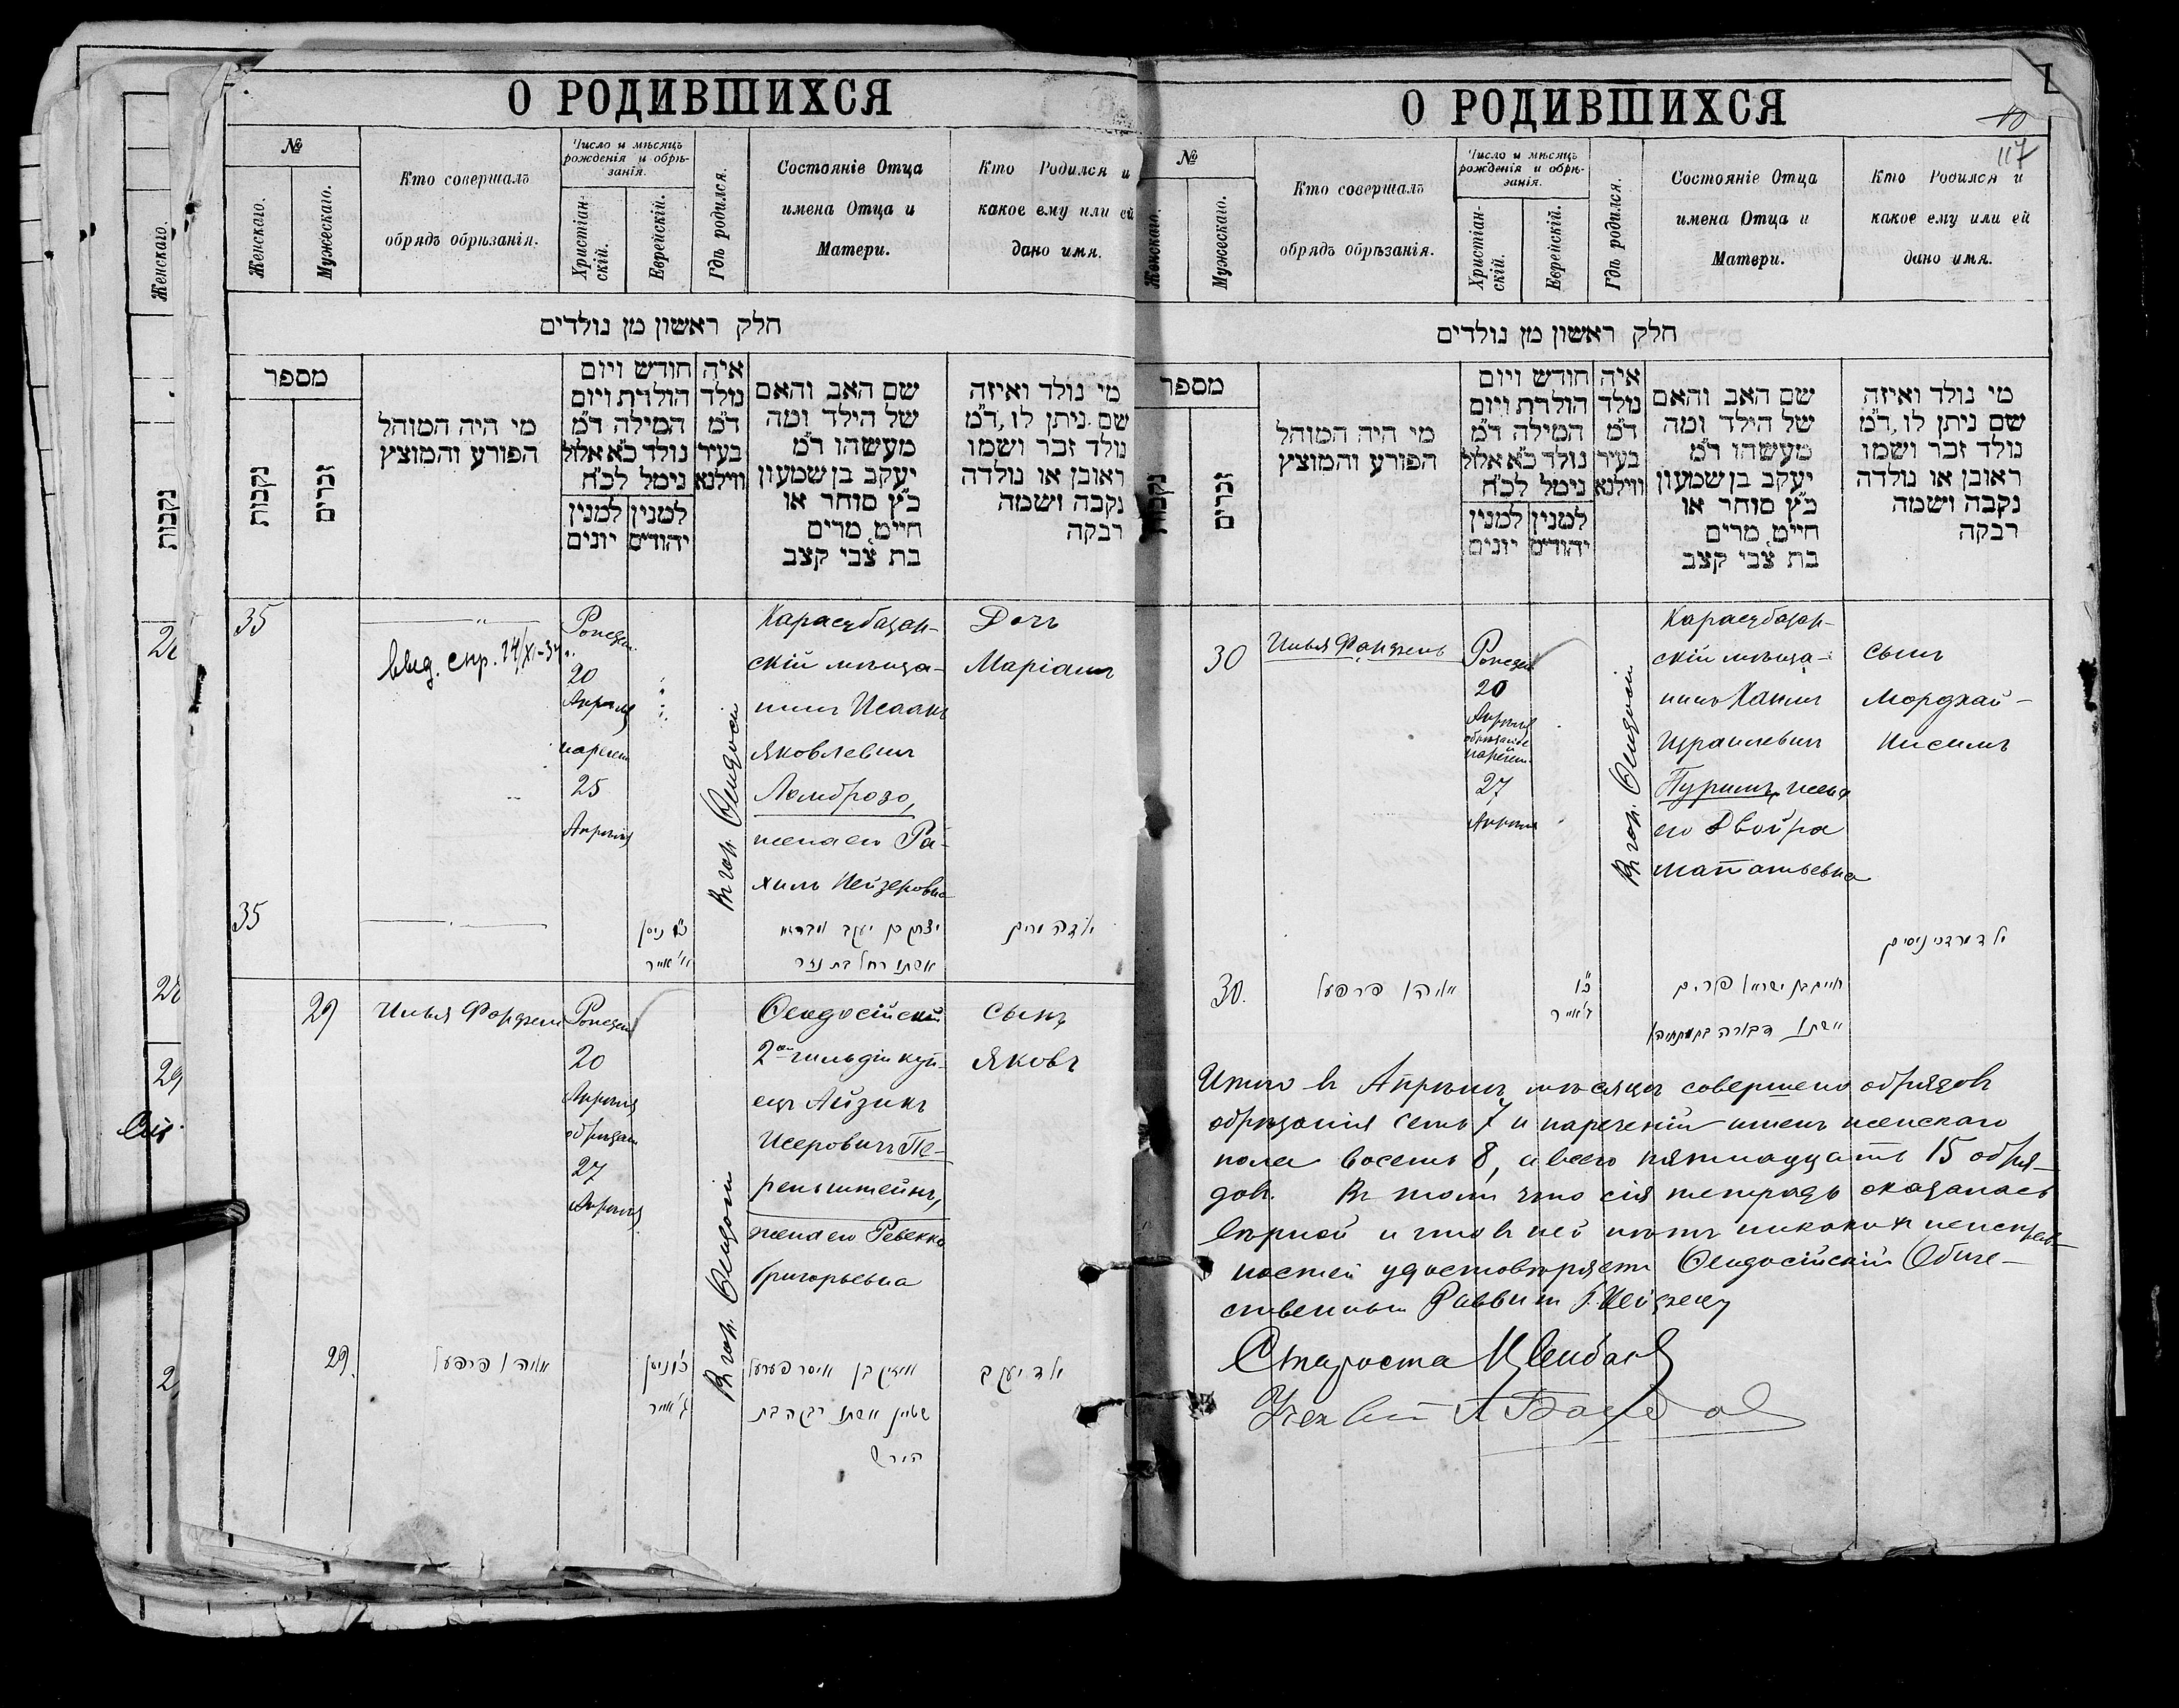 О РОДИВШИХСЯ
№
Женскаго.
Мужескаго.
Кто совершалъ
обрядъ обрѣзанія.
Число и мѣсяцъ
рожденія и обрѣ-
занія.
Христіан-
скій.
Еврейскій.
Гдѣ родился.
Состояніе Отца
имена Отца и
Матери.
Кто Родился и
какое ему или ей
дано имя.
חלק ראשון מן נולדים
מספר
נקבות
זכרים
מי היה המוהל
הפורע והמוצץ
חודש ויום
הולדת ויום
המילה ד״מ
נולד כ״א אלול
נימל לכ״ח
למנין
יונים
למנין
יהודים
איה
נולד
ד״מ
בעיר
ווילנא
שם האב והאם
של הילד ומה
מעשהו ד״מ
יעקב בן שמעון
כ״ץ סוחר או
חייט, מרים
בת צבי קצב
מי נולד ואיזה
שם ניתן לו, ד״מ
נולד זכר ושמו
ראובן או נולדה
נקבה ושמה
רבקה
35
20
Апрѣля
25
Апрѣля
Въ гор. Ѳеодосіи
Карасубазар-
скій мѣща-
нинъ Исаакъ
Яковлевичъ
Ломброзо,
жена его Ра-
хиль
Дочь
Маріамъ
35
יצחק בן יעקב
אשתו רחל בת
ילדה מרים
29
Илья
20
Апрѣля
27
Апрѣля
Въ гор. Ѳеодосіи
Ѳеодосійскій
2ой гильдіи куп-
ецъ Айзикъ
Исеровичъ Пе-
рельштейнъ,
жена его Ревекка
Григорьевна
Сынъ
Яковъ
29.
כ״ו ניסן
ג׳ אייר
אייזיק בן איסר פערעל
שטיין אשתו רבקה בת
הירש
ילד יעקב
О РОДИВШИХСЯ
117
№
Женскаго.
Мужескаго.
Кто совершалъ
обрядъ обрѣзанія.
Число и мѣсяцъ
рожденія и обрѣ-
занія.
Христіан-
скій.
Еврейскій.
Гдѣ родился.
Состояніе Отца
имена Отца и
Матери.
Кто Родился и
какое ему или ей
дано имя.
חלק ראשון מן נולדים
מספר
נקבות
זכרים
מי היה המוהל
הפורע והמוצץ
חודש ויום
הולדת ויום
המילה ד״מ
נולד כ״א אלול
נימל לכ״ח
למנין
יונים
למנין
יהודים
איה
נולד
ד״מ
בעיר
ווילנא
שם האב והאם
של הילד ומה
מעשהו ד״מ
יעקב בן שמעון
כ״ץ סוחר או
חייט, מרים
בת צבי קצב
מי נולד ואיזה
שם ניתן לו, ד״מ
נולד זכר ושמו
ראובן או נולדה
נקבה ושמה
רבקה
30
Илья
20
Апрѣля
27
Апрѣля
Въ гор. Ѳеодосіи
Карасубазар-
скій мѣща-
нинъ Хаимъ
Израилевичъ
Пуримъ, жена
его Двойра
Мататьевна
Сынъ
Мордхай-
Нисимъ
ילד מרדכי ניסים
30.
כ״ו
ג׳ אייר
חיים בן ישראל פורים
אשתו דבורה בת מתתיהו
Итого въ Апрѣлѣ мѣсяцѣ совершено обрядовъ
обрѣзанія семь 7 и нареченій именъ женскаго
пола восемь 8, а всего пятнадцать 15 обря-
довъ. Въ томъ что сія тетрадь оказалась
вѣрной и что въ ней нѣтъ никакихъ неисправ-
ностей удостовѣряетъ Ѳеодосійскій Обще-
ственный Раввинъ
Староста
Ученый